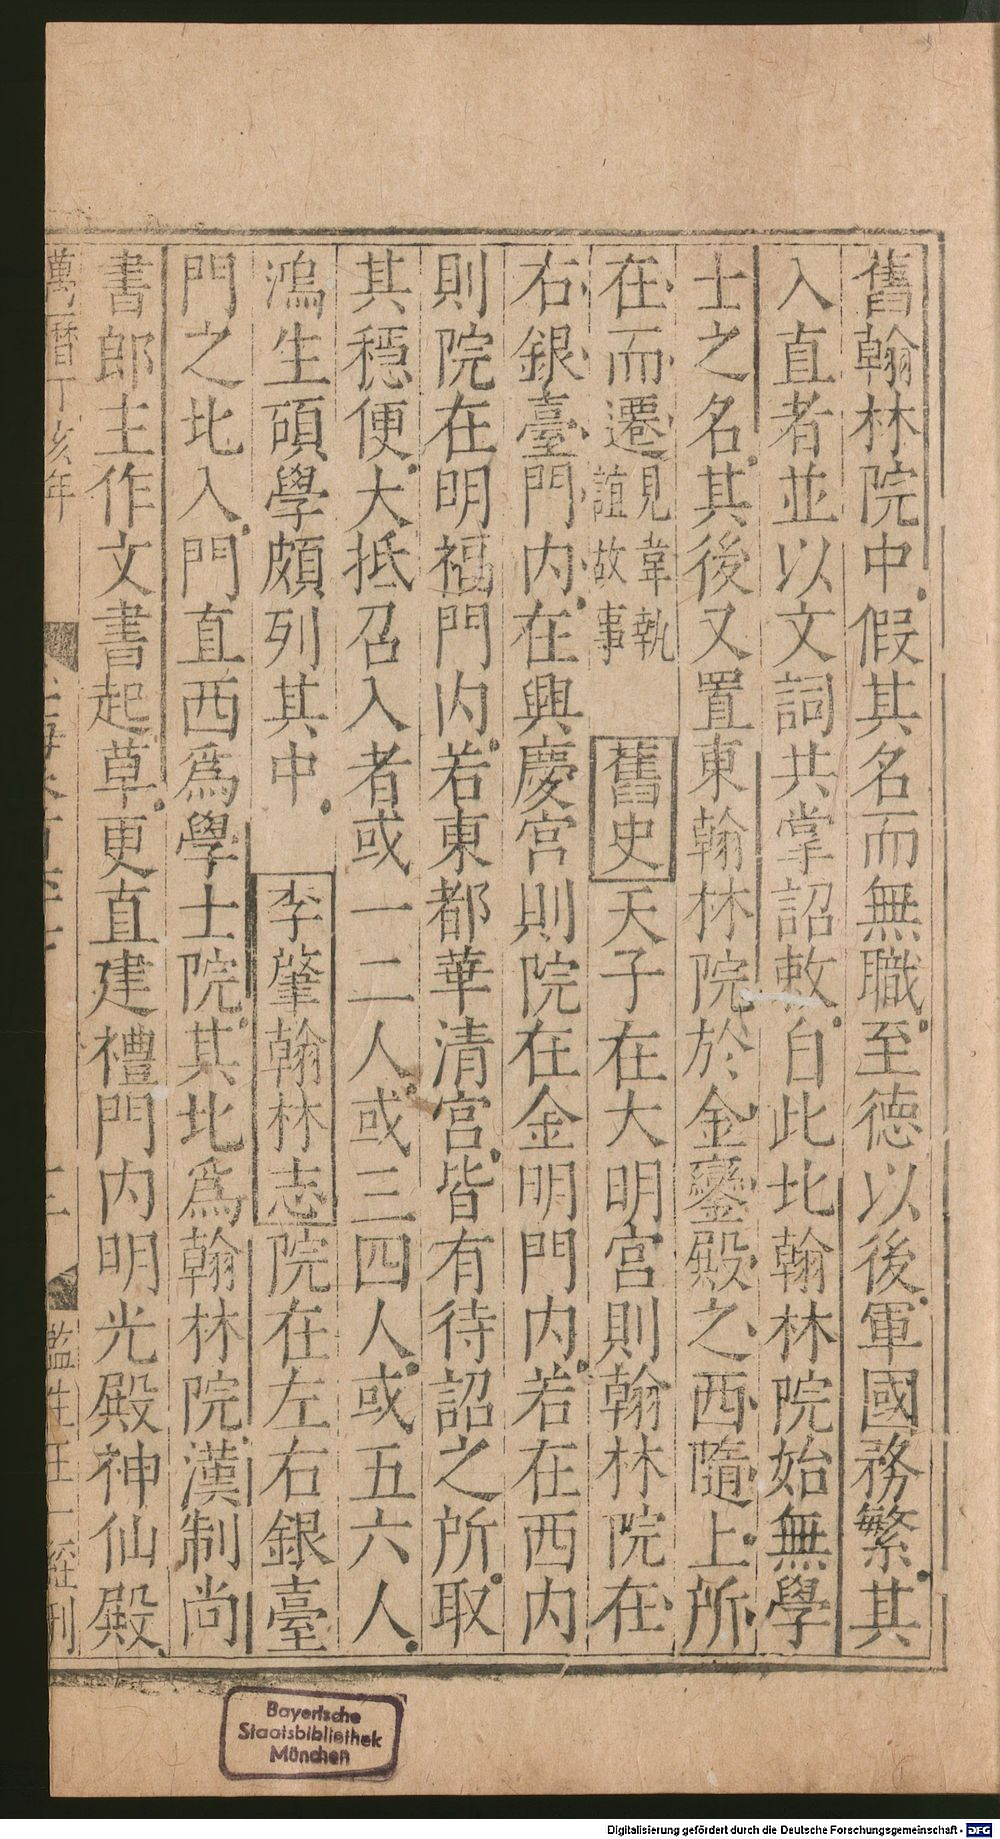 舊翰林院中假其名而無職至德以後軍國務繁其
入直者並以文詞共掌詔敕自此北翰林院始無學
士之名其後又置東翰林院於金鑾殿之西隨上所
在而遷見韋執誼故事 舊史天子在大明宮則翰林院在
右銀臺門内在興慶宮則院在金明門内若在西内
則院在明福門内若東都華清宮皆有待詔之所取
其穩便大抵召入者或一二人或三四人或五六人
鴻生碩學頗列其中 李肇翰林志院在左右銀臺
門之北入門直西爲學士院其北爲翰林院漢制尚
書郎主作文書起草更直建禮門内明光殿神仙殿
萬曆丁亥年
三
監生汪一經刊
Bayerische
Staatsbibliothek
München
Digitalisierung gefördert durch die Deutsche Forschungsgemeinschaft - DFG